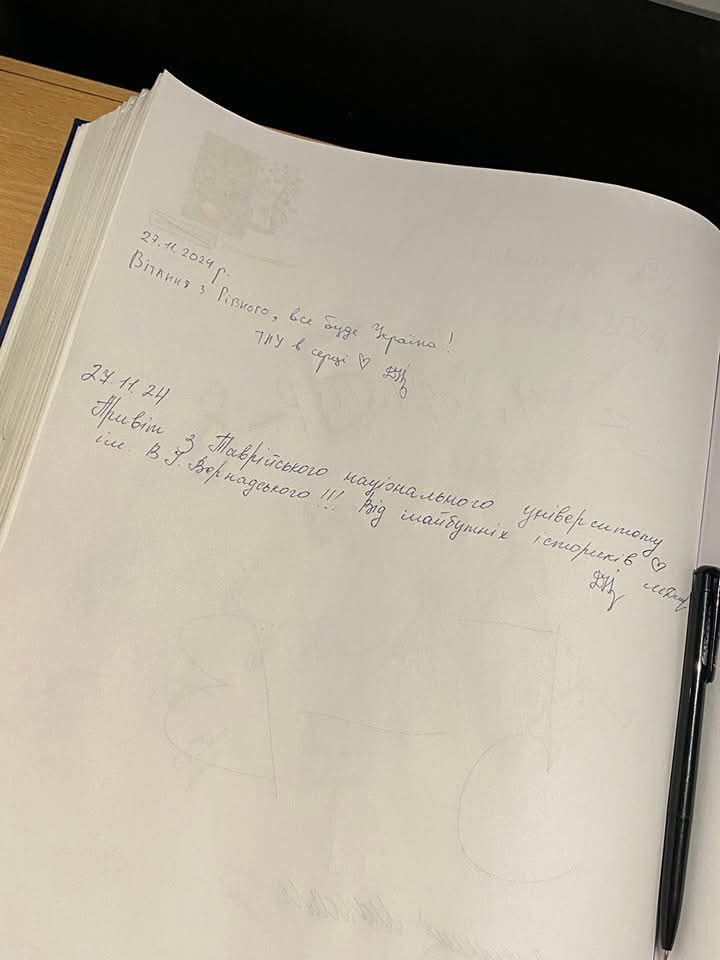 27.11.2024 р.
Вітання з Рівного, все буде Україна!
ТНУ в серці ♡
27.11.24
Привіт з Таврійського національного університету
ім. В.І. Вернадського!!! Від майбутніх істориків ♡